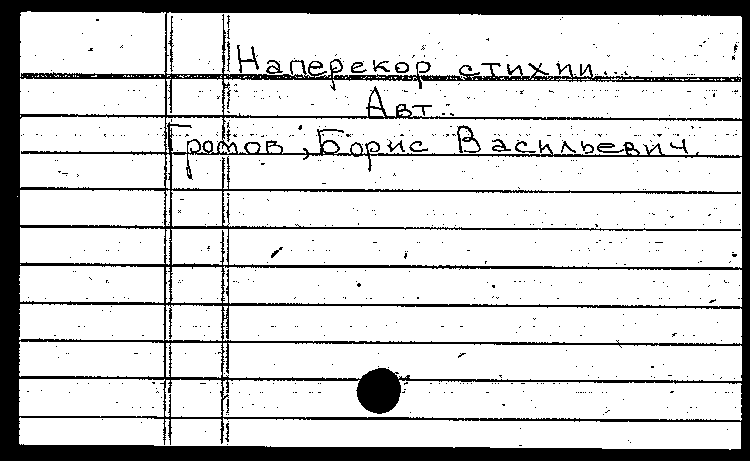 Наперекор стихии...
Авт..
Громов, Борис Васильевич.